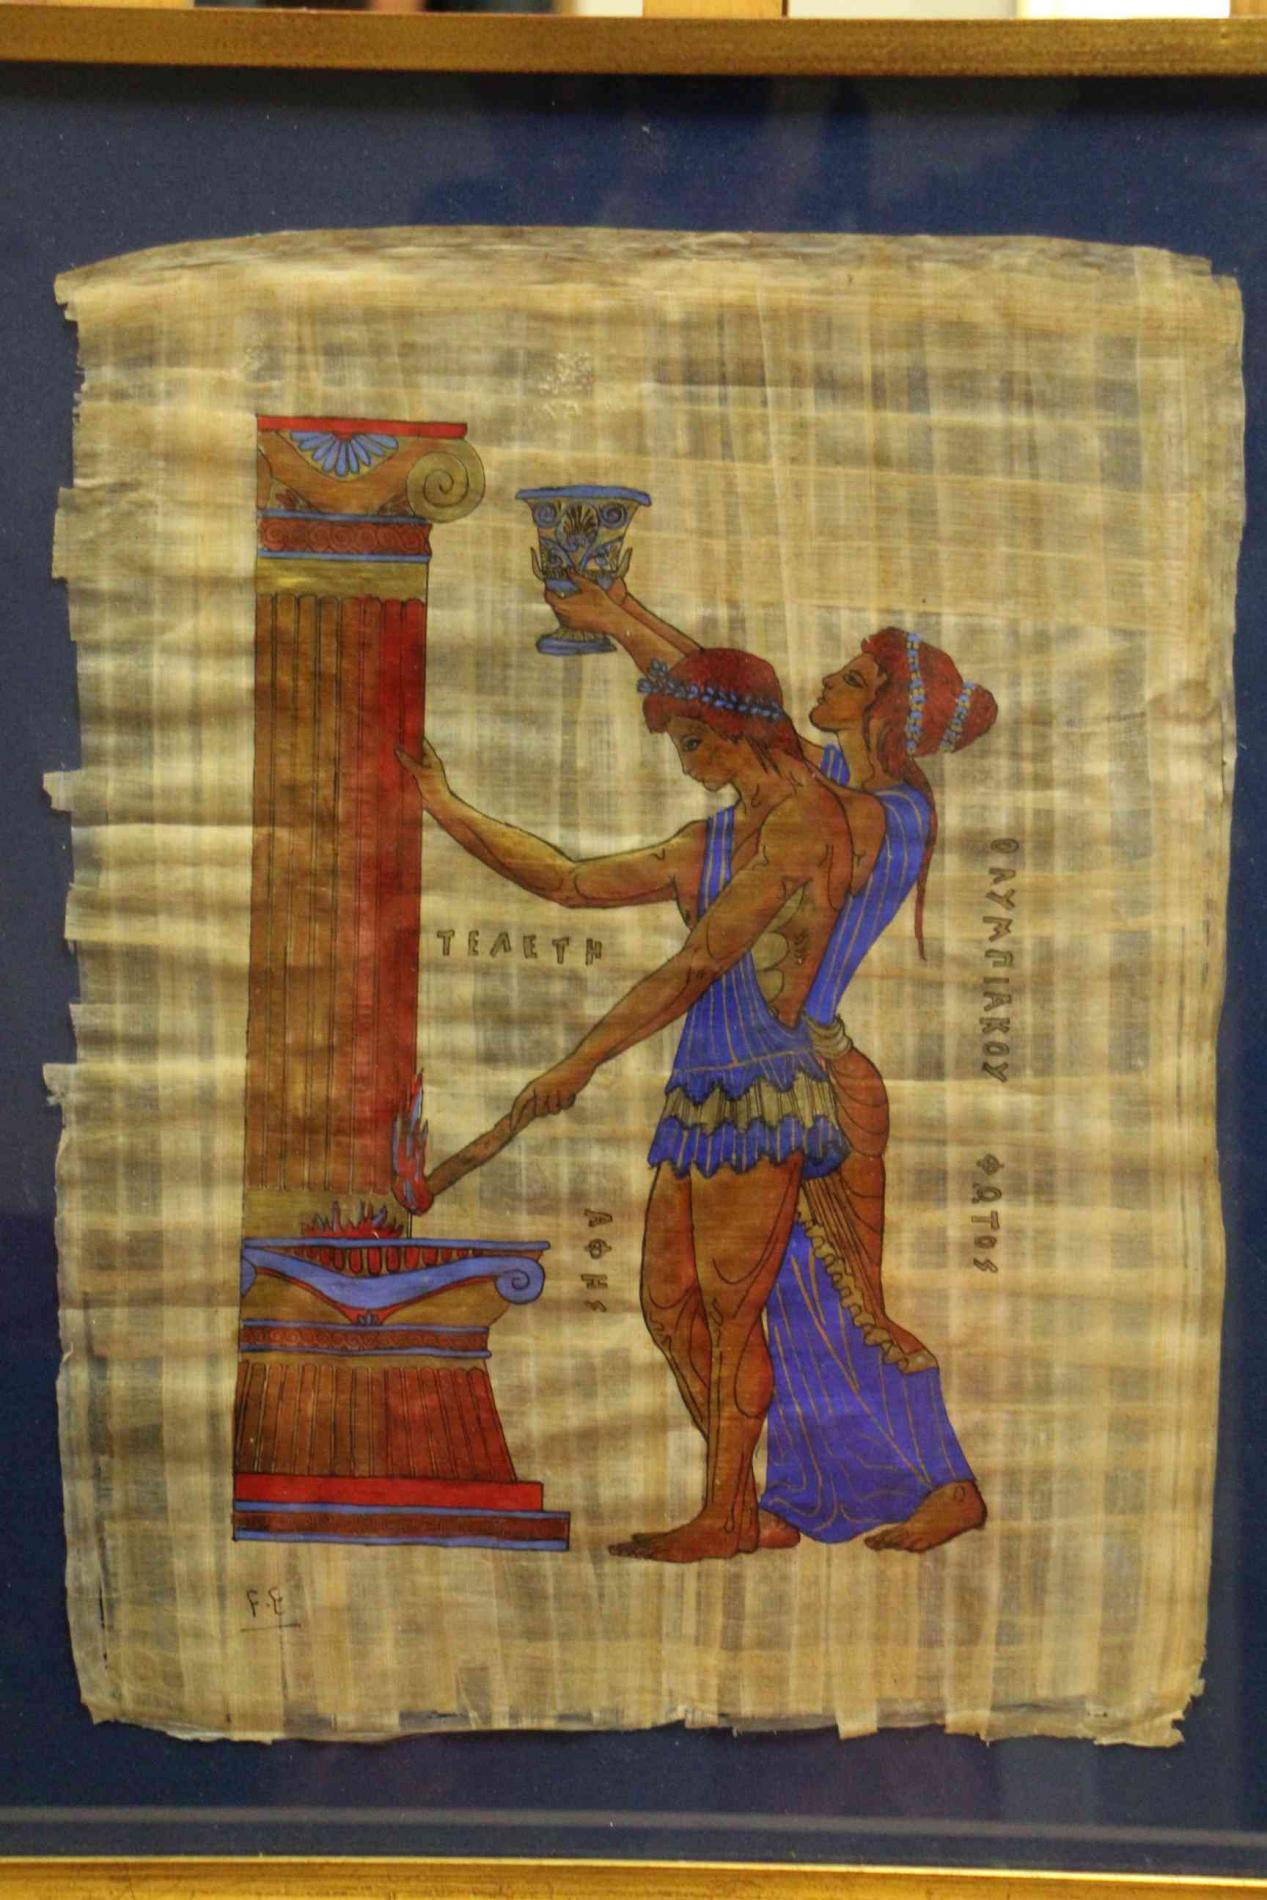 ΤΕΛΕΤΗ
ΑΦΗΣ
ΟΛΥΜΠΙΑΚΟΥ ΦΩΤΟΣ